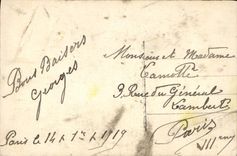 Bons Baisers
Georges
Paris le 14 1919
Monsieur et Madame
Camotte
9 Rue du Général
Lambert
Paris
VII